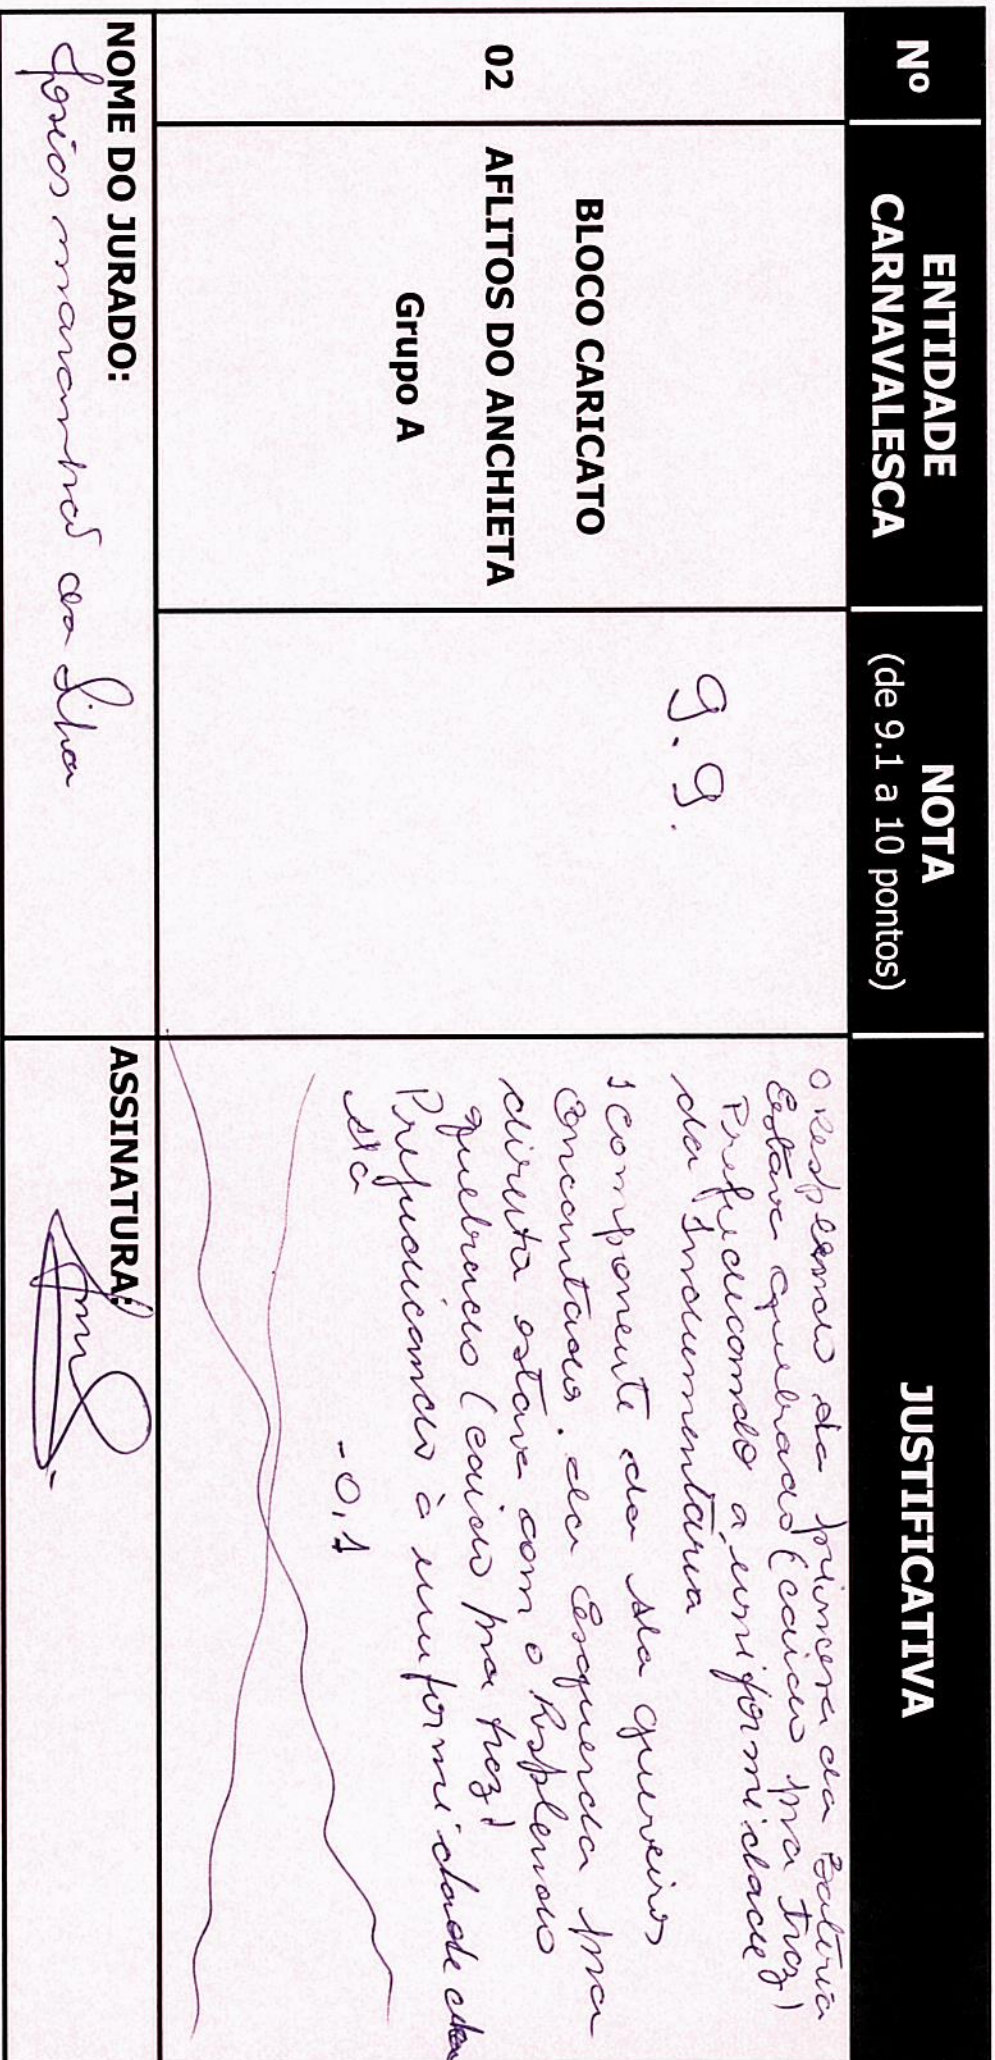 Nº
ENTIDADE
CARNAVALESCA
NOTA
(de 9.1 a 10 pontos)
JUSTIFICATIVA
02
BLOCO CARICATO
AFLITOS DO ANCHIETA
Grupo A
9.9.
O Resplendo da princesa da Bateria
Estava quebrado (caido pra traz)
Prejudicando a uniformidade
da Indumentária
1 componente da ala guerreiros
Encantados. da Esquerda pra
direita estava com o Resplendo
quebrado (caido pra traz)
Prejudicando à uniformidade da
ala
-0,1
NOME DO JURADO:
da Silva
ASSINATURA: